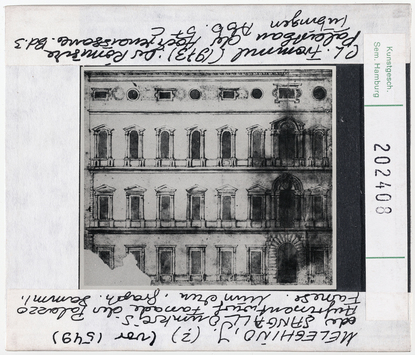 MELEGHINO, J. (?) (vor 1549)
da SANGALLO-Umkreis:
Aufrissentwurf Fassade des Palazzo
Farnese. München. Graph. Samml.
CL. Frommel (1973): Der Römische
Palastbau der Hochrenaissance. Bd. 3
Tübingen Abb. 57c
Kunstgesch.
Sem. Hamburg
202408